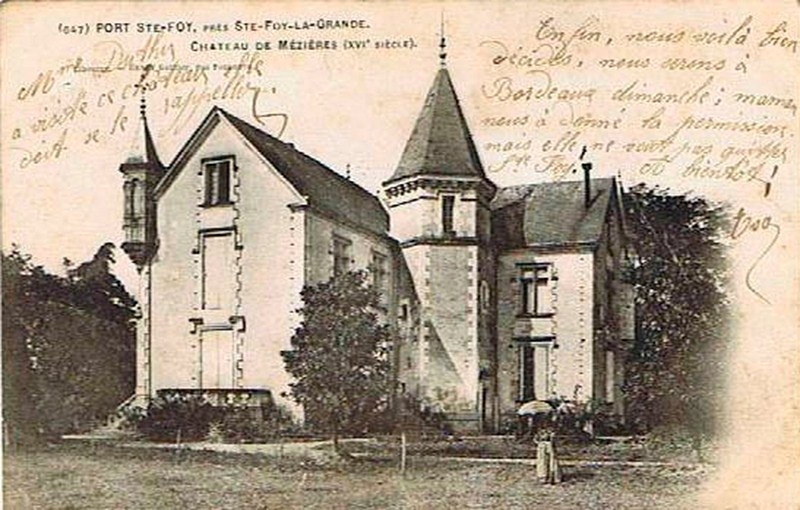 (647) PORT STE-FOY, PRÈS STE-FOY-LA-GRANDE.
CHATEAU DE MÉZIÈRES (XVIe SIÈCLE).
Mme
a visité ce château elle
doit se le rappeller.
Enfin, nous voilà bien
décidés, nous serons à
Bordeaux dimanche; maman
nous a donné la permission
mais elle ne veut pas quitter
Ste Foy. Et bientôt!